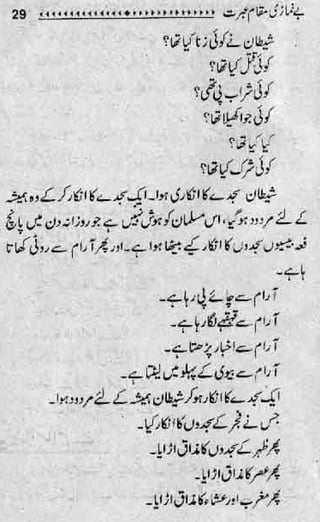 بے نمازی مقام عبرت 29
شیطان نے کوئی زنا کیا تھا؟
کوئی قتل کیا تھا؟
کوئی شراب پی تھی؟
کوئی جوا کھیلا تھا؟
کیا کیا تھا؟
کوئی شرک کیا تھا؟
شیطان سجدے کا انکاری ہوا۔ ایک سجدے کا انکار کر کے وہ ہمیشہ
کے لئے مردود ہو گیا، اس مسلمان کو ہوش نہیں ہے جو روزانہ دن میں پانچ
فعہ بیسیوں سجدوں کا انکار کیے بیٹھا ہوا ہے۔ اور پھر آرام سے روٹی کھاتا
ہا ہے۔
آرام سے چائے پی رہا ہے۔
آرام سے قہقہے لگا رہا ہے۔
آرام سے اخبار پڑھتا ہے۔
آرام سے بیوی کے پہلو میں لیٹتا ہے۔
ایک سجدے کا انکار ہو کر شیطان ہمیشہ کے لئے مردود ہوا۔
جس نے فجر کے سجدوں کا انکار کیا۔
پھر ظہر کے سجدوں کا مذاق اڑایا۔
پھر عصر کا مذاق اڑایا۔
پھر مغرب اور عشاء کا مذاق اڑایا۔